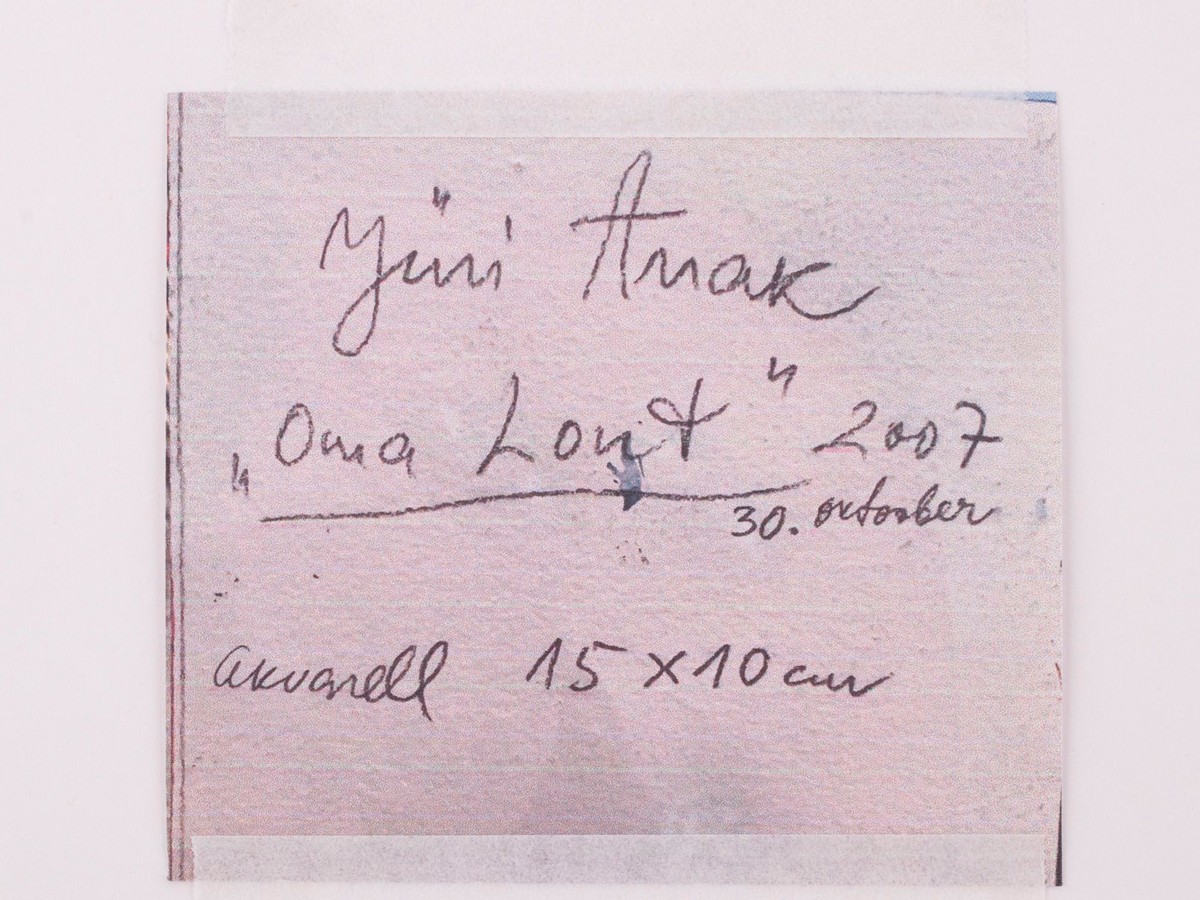 Jüri Arrak
„Oma Lont" 2007
30. oktoober
akvarell 15 x 10 cm